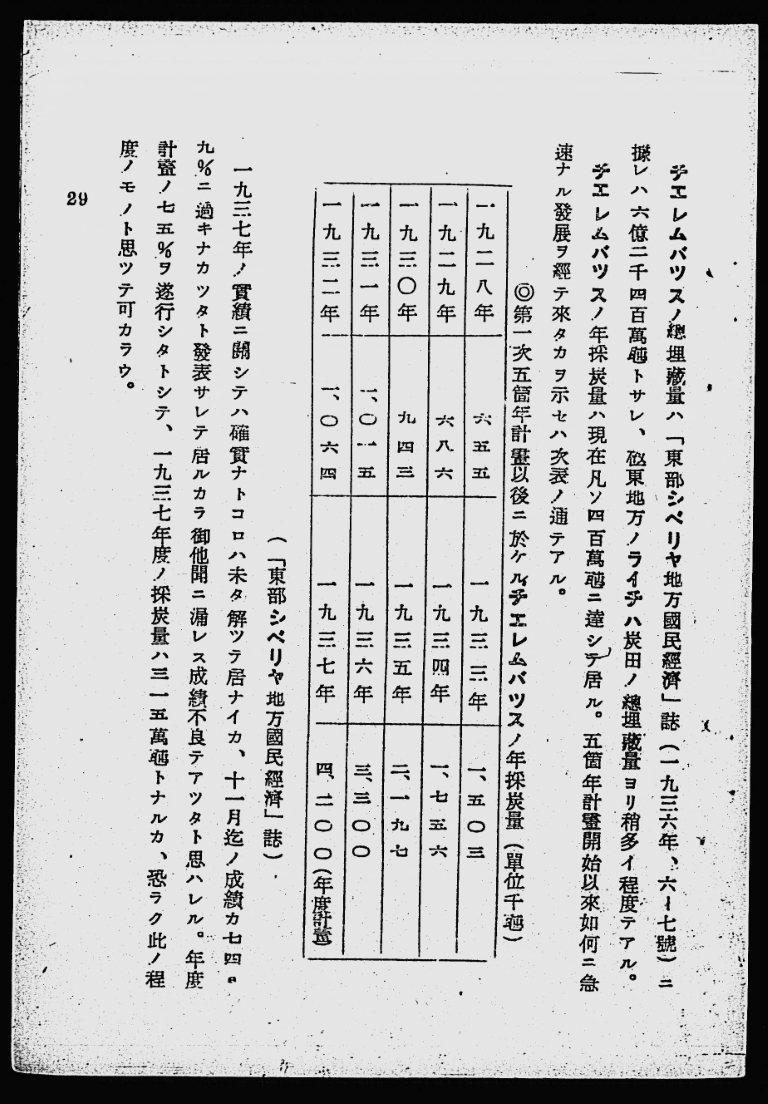 チエレムバツスノ總埋藏量ハ「東部シベリヤ地方國民經濟」誌(一九三六年、六―七號)ニ
據レハ六億二千四百萬瓲トサレ、極東地方ノライチハ炭田ノ總埋藏量ヨリ稍多イ程度テアル。
チエレムバツスノ年採炭量ハ現在凡ソ四百萬瓲ニ達シテ居ル。五箇年計畫開始以來如何ニ急
速ナル發展ヲ經テ來タカヲ示セハ次表ノ通テアル。
◎第一次五箇年計畫以後ニ於ケルチエレムバツスノ年採炭量(單位千瓲)
一九二八年 六五五 一九三三年 一、五〇三
一九二九年 六八六 一九三四年 一、七五六
一九三〇年 九四三 一九三五年 二、一九七
一九三一年 一、〇一五 一九三六年 三、三〇〇
一九三二年 一、〇六四 一九三七年 四、二〇〇(年度計畫)
(「東部シベリヤ地方國民經濟」誌)
一九三七年ノ實績ニ關シテハ確實ナトコロハ未タ解ツテ居ナイカ、十一月迄ノ成績カ七四・
九%ニ過キナカツタト發表サレテ居ルカラ御他聞ニ漏レス成績不良テアツタト思ハレル。年度
計畫ノ七五%ヲ遂行シタトシテ、一九三七年度ノ採炭量ハ三一五萬瓲トナルカ、恐ラク此ノ程
度ノモノト思ツテ可カラウ。
29